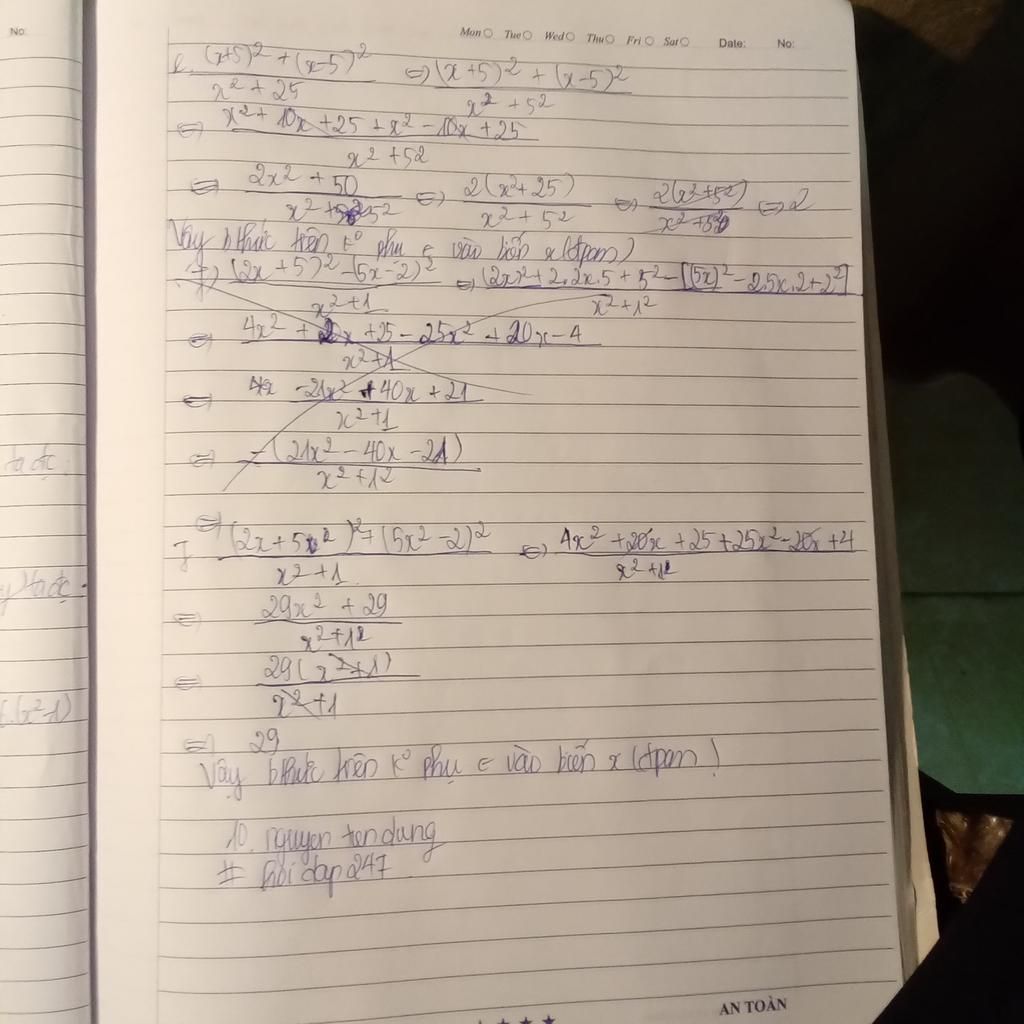 No:
Mon Tue Wed Thu Fri Sat Date: No:
e. ((x+5)² + (x-5)²)/(x² + 25) ⇔ ((x+5)² + (x-5)²)/(x² + 5²)
⇔ (x² + 10x + 25 + x² - 10x + 25)/(x² + 5²)
⇔ (2x² + 50)/(x² + 5²) ⇔ (2(x² + 25))/(x² + 5²) ⇔ (2(x² + 5²))/(x² + 5²) ⇔ 2
Vậy bthức trên k° phụ ∈ vào biến x (đpcm)
f) ((2x + 5)² - (5x - 2)²)/(x² + 1) ⇔ ((2x)² + 2.2x.5 + 5² - [(5x)² - 2.5x.2 + 2²])/(x² + 1²)
⇔ (4x² + 20x + 25 - 25x² + 20x - 4)/(x² + 1)
⇔ (-21x² + 40x + 21)/(x² + 1)
⇔ (-(21x² - 40x - 21))/(x² + 1²)
f ⇔ ((2x + 5)² + (5x² - 2)²)/(x² + 1) ⇔ (4x² + 20x + 25 + 25x² - 20x + 4)/(x² + 1²)
⇔ (29x² + 29)/(x² + 1²)
⇔ (29(x² + 1))/(x² + 1)
⇔ 29
Vậy bthức trên k° phụ ∈ vào biến x (đpcm)
10. nguyen ten dung
# hoi dap 247
ta đc:
y ta đc:
(x²-1)
AN TOÀN